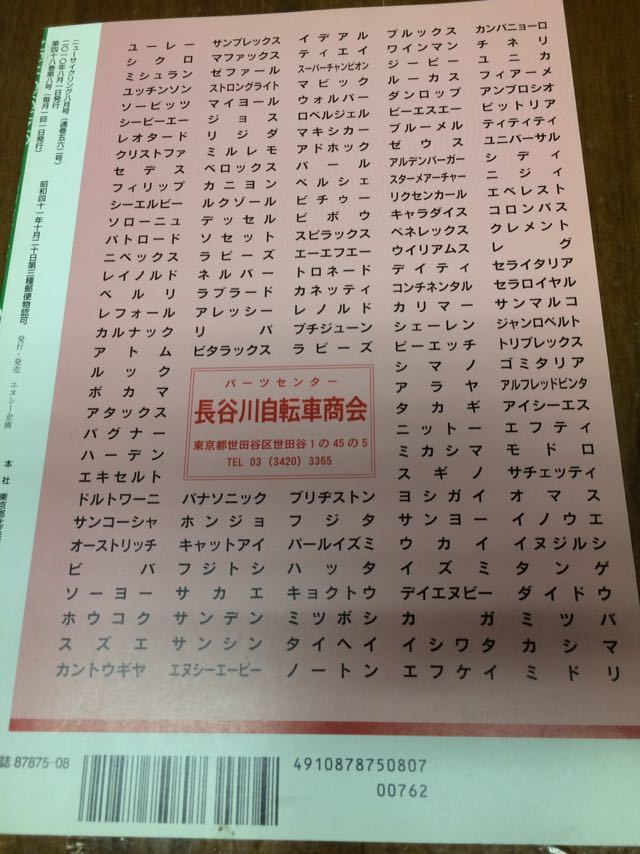 ニューサイクリング八月号(通巻五六二号)
二〇一〇年八月一日発行
第四十八巻第八号(毎月一回一日発行)
昭和四十一年十月二十日第三種郵便物認可
発行・発売 エヌシー企画
本社
ユーレー サンプレックス イデアル ブルックス カンパニョーロ
シクロ マファックス ティエイ ワインマン チネリ
ミシュラン ゼファール スーパーチャンピオン ジービー ユニカ
ユッチンソン ストロングライト マビック ルーカス フィアーメ
ソービッツ マイヨール ウォルバー ダンロップ アンブロシオ
シービーエー ジョス ロベルジェル ビーエスエー ビットリア
レオタード リジダ マキシカー ブルーメル ティティティ
クリストファ ミルレモ アドホック ゼウス ユニバーサル
セデス ベロックス バール アルデンバーガー シディ
フィリップ カニヨン ペルシェ スターメアーチャー ニジィ
シーエルビー ルクゾール ビチュー リクセンカール エベレスト
ソローニュ デッセル ビボウ キャラダイス コロンバス
パトロード ソセット スピラックス ベネレックス クレメント
ニベックス ラピーズ エーエフエー ウイリアムス レグ
レイノルド ネルバー トロネード デイティ セライタリア
ベルリ ラプラード カネッティ コンチネンタル セラロイヤル
レフォール アレッシー レノルド カリマー サンマルコ
カルナック リバ プチジューン シェーレン ジャンロベルト
アトム ビタラックス ラピーズ ビーエッチ トリプレックス
ルック シマノ ゴミタリア
ボカマ アラヤ アルフレッドビンダ
アタックス タカギ アイシーエス
バグナー ニットー エフティ
ハーデン ミカシマ モドロ
エキセルト スギノ サチェッティ
パーツセンター
長谷川自転車商会
東京都世田谷区世田谷1の45の5
TEL 03 (3420) 3365
ドルトワーニ パナソニック ブリヂストン ヨシガイ オマス
サンコーシャ ホンジョ フジタ サンヨー イノウエ
オーストリッチ キャットアイ パールイズミ ウカイ イヌジルシ
ビバ フジトシ ハッタ イズミ タンゲ
ソーヨー サカエ キョクトウ デイエヌビー ダイドウ
ホウコク サンデン ミツボシ カガ ミツバ
スズエ サンシン タイヘイ イシワタ カシマ
カントウギヤ エヌシーエーピー ノートン エフケイ ミドリ
誌 87875-08
4910878750807
00762